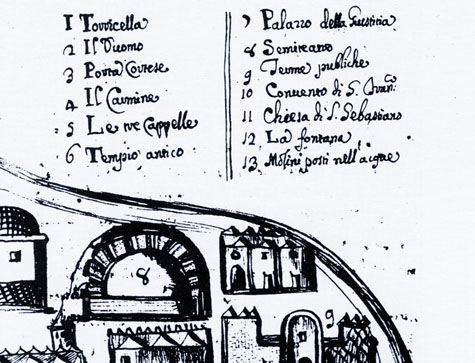 1 Torricella
2 Il Duomo
3 Porta
4 Il Carmine
5 Le tre Cappelle
6 Tempio antico
7 Palazzo della Giusticia
8
9 Terme publiche
10 Convento di S.
11 Chiesa di S. Sebastiano
12 La fontana
13 Molini posti nell'acque
8
9